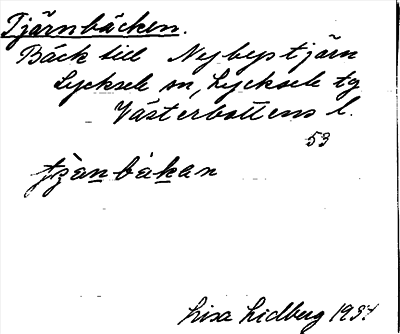 Tjärnbäcken.
Bäck till Nybystjärn
Lycksele sn, Lycksele tg
Västerbottens l.
53
tjànbákan
Lisa Lidberg 1934